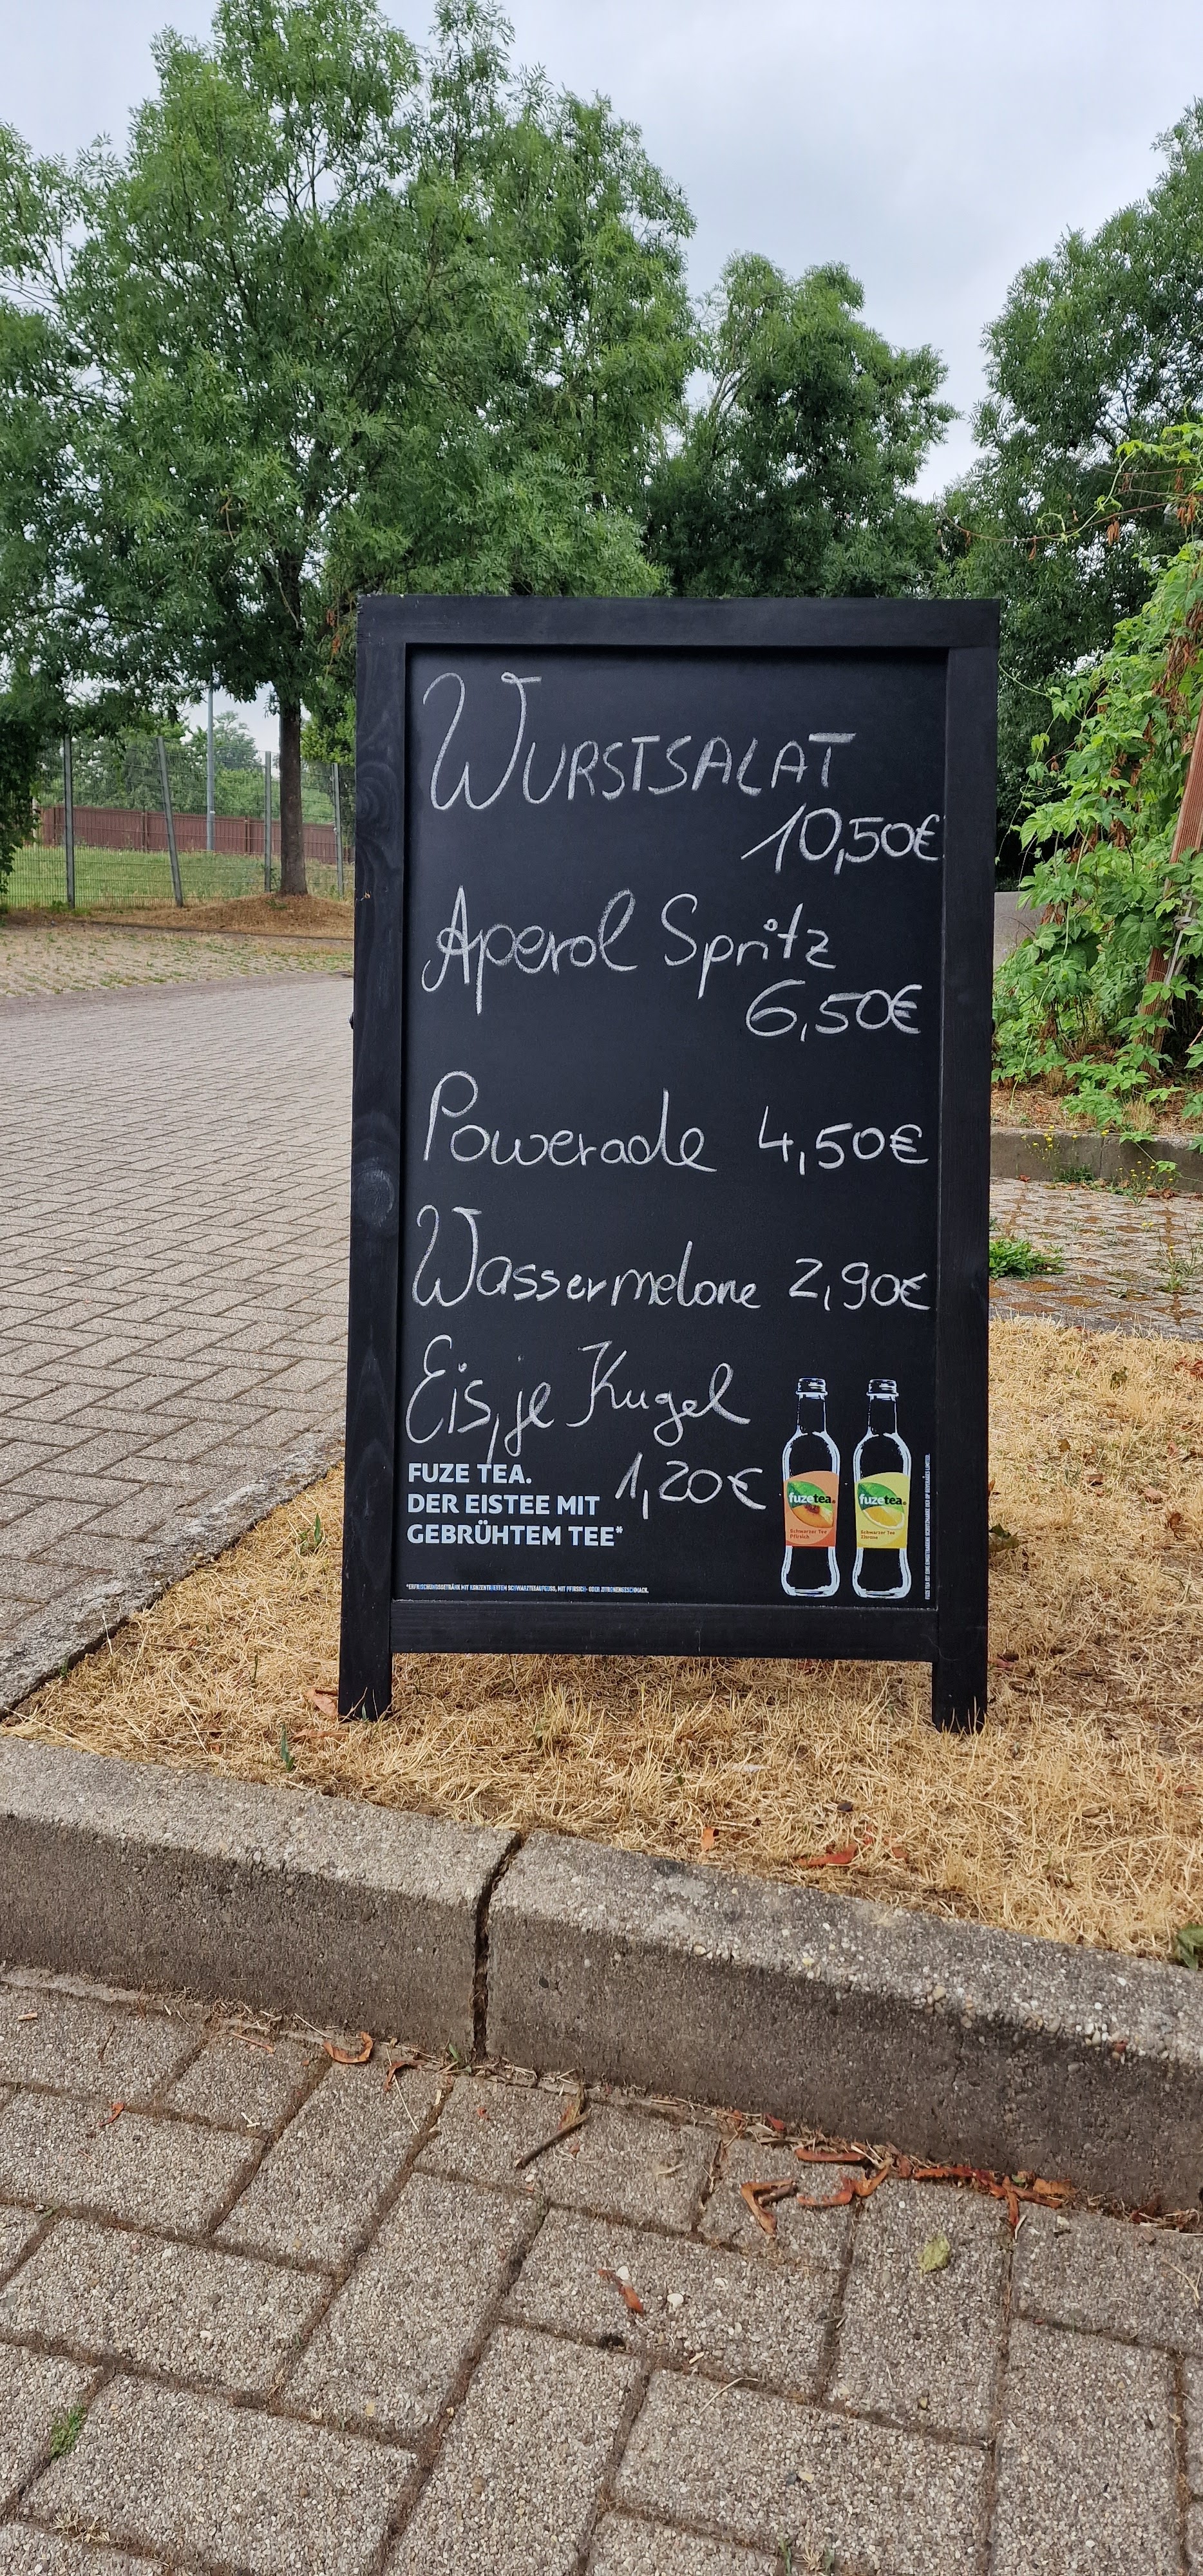 Wurstsalat
10,50€
Aperol Spritz
6,50€
Powerade 4,50€
Wassermelone 2,90€
Eis, je Kugel
1,20€
FUZE TEA.
DER EISTEE MIT
GEBRÜHTEM TEE*
*ERFRISCHUNGSGETRÄNK MIT KONZENTRIERTEN SCHWARZTEEAUFGUSS, MIT PFIRSICH- ODER ZITRONENGESCHMACK.
fuzetea
Schwarzer Tee
Pfirsich
fuzetea
Schwarzer Tee
Zitrone